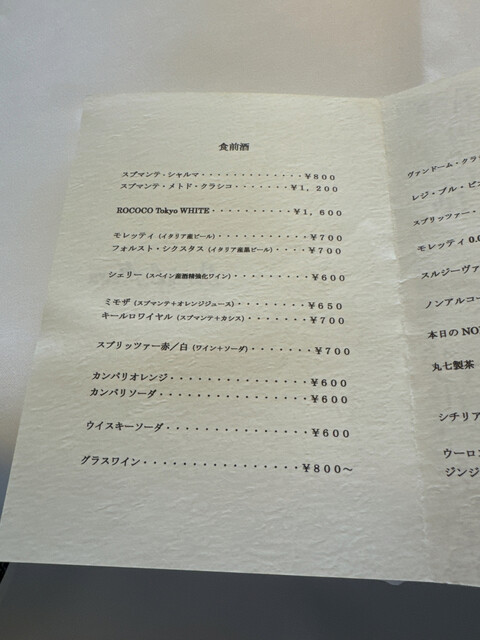 食前酒
スプマンテ・シャルマ・・・・・・・・・・・・・¥800
スプマンテ・メトド・クラシコ・・・・・・・¥1,200
ROCOCO Tokyo WHITE・・・・・・・・・・¥1,600
モレッティ(イタリア産ビール)・・・・・・・・・¥700
フォルスト・シクスタス(イタリア産黒ビール)・・・・¥700
シェリー(スペイン産酒精強化ワイン)・・・・・・・・¥600
ミモザ(スプマンテ+オレンジジュース)・・・・・・・¥650
キールロワイヤル(スプマンテ+カシス)・・・・・・¥700
スプリッツァー赤/白(ワイン+ソーダ)・・・・・・・¥700
カンパリオレンジ・・・・・・・・・・・・・・・¥600
カンパリソーダ・・・・・・・・・・・・・・・・¥600
ウイスキーソーダ・・・・・・・・・・・・・・・¥600
グラスワイン・・・・・・・・・・・・・・・・・¥800~
ヴァンドーム・クラ
レジ・ブル・ピ
スプリッツァー・
モレッティ 0.0
スルジーヴァ
ノンアルコー
本日の NO
丸七製茶
シチリア
ウーロ
ジンジ